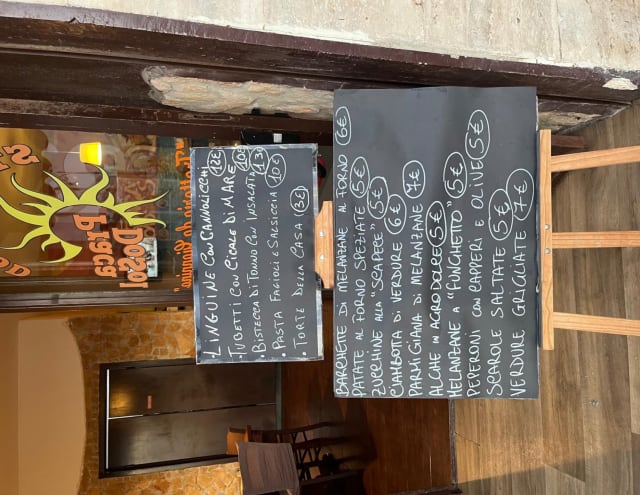 LINGUINE CON CANNOLICCHI 12€
TUBETTI CON CICALE DI MARE 10€
BISTECCA DI TONNO CON INSALATA 13€
• PASTA FAGIOLI E SALSICCIA 10€
• TORTE DELLA CASA 3€
BARCHETTE DI MELANZANE AL FORNO 6€
PATATE AL FORNO SPEZIATE 5€
ZUCCHINE ALLA "SCAPECE" 5€
CIAMBOTTA DI VERDURE 6€
PARMIGIANA DI MELANZANE 7€
ALICHE IN AGRODOLCE 5€
MELANZANE A "FUNGHETTO" 5€
PEPERONI CON CAPPERI E OLIVE 5€
SCAROLE SALTATE 5€
VERDURE GRIGLIATE 7€